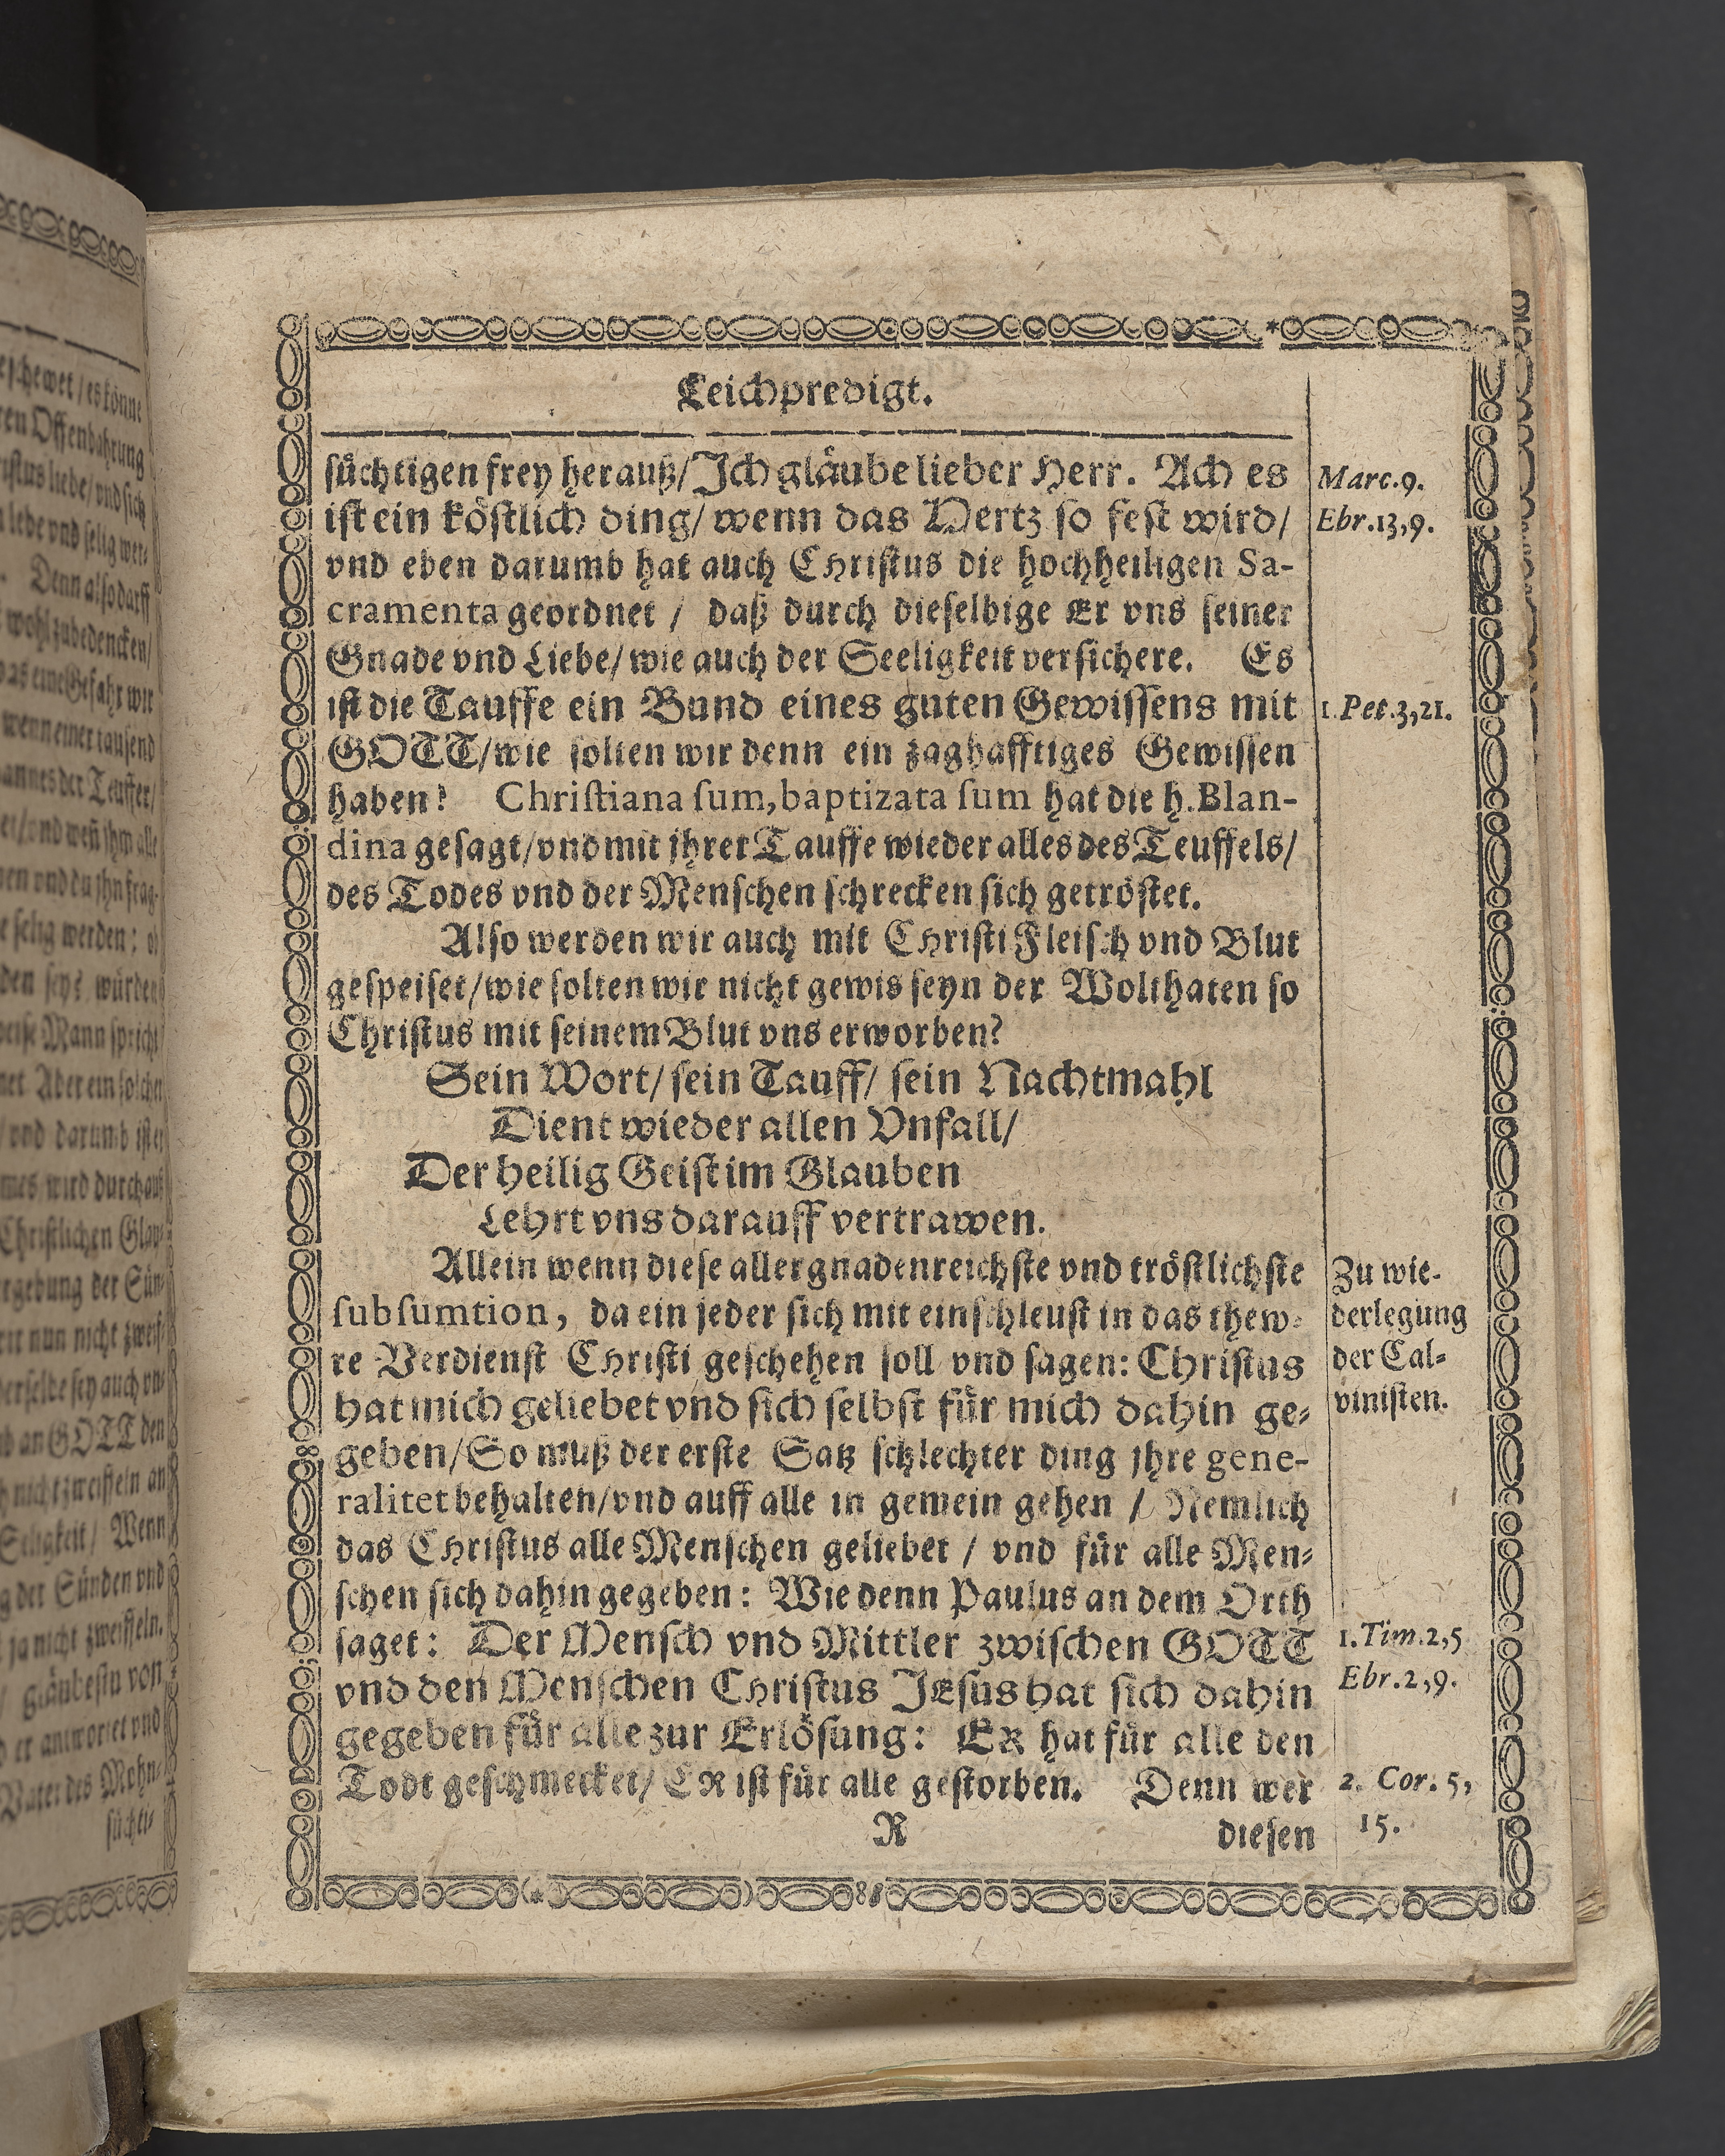 Leichpredigt.
ſüchtigen frey herauß/ Ich gläube lieber Herr. Ach es
iſt ein köſtlich ding/ wenn das Hertz ſo feſt wird/
vnd eben darumb hat auch Chriſtus die hochheiligen Sa-
cramenta geordnet / daß durch dieſelbige Er vns ſeiner
Gnade vnd Liebe/ wie auch der Seeligkeit verſichere. Es
iſt die Tauffe ein Bund eines guten Gewiſſens mit
GOTT/ wie ſolten wir denn ein zaghafftiges Gewiſſen
haben? Chriſtiana ſum, baptizata ſum hat die h. Blan-
dina geſagt/ vnd mit jhrer Tauffe wieder alles des Teuffels/
des Todes vnd der Menſchen ſchrecken ſich getröſtet.
Alſo werden wir auch mit Chriſti Fleiſch vnd Blut
geſpeiſet/ wie ſolten wir nicht gewis ſeyn der Wolthaten ſo
Chriſtus mit ſeinem Blut vns erworben?
Sein Wort/ ſein Tauff/ ſein Nachtmahl
Dient wieder allen Vnfall/
Der heilig Geiſt im Glauben
Lehrt vns darauff vertrawen.
Allein wenn dieſe allergnadenreichſte vnd tröſtlichſte
ſubſumtion, da ein jeder ſich mit einſchleuſt in das thew-
re Verdienſt Chriſti geſchehen ſoll vnd ſagen: Chriſtus
hat mich geliebet vnd ſich ſelbſt für mich dahin ge-
geben/ So muß der erſte Satz ſchlechter ding jhre gene-
ralitet behalten/ vnd auff alle in gemein gehen / Nemlich
das Chriſtus alle Menſchen geliebet / vnd für alle Men-
ſchen ſich dahin gegeben: Wie denn Paulus an dem Orth
ſaget: Der Menſch vnd Mittler zwiſchen GOTT
vnd den Menſchen Chriſtus JEſus hat ſich dahin
gegeben für alle zur Erlöſung: ER hat für alle den
Todt geſchmecket/ ER iſt für alle geſtorben. Denn wer
R diesen
Marc.9.
Ebr.13,9.
1.Pet.3,21.
Zu wie-
derlegung
der Cal-
viniſten.
1.Tim.2,5
Ebr.2,9.
2. Cor. 5,
15.